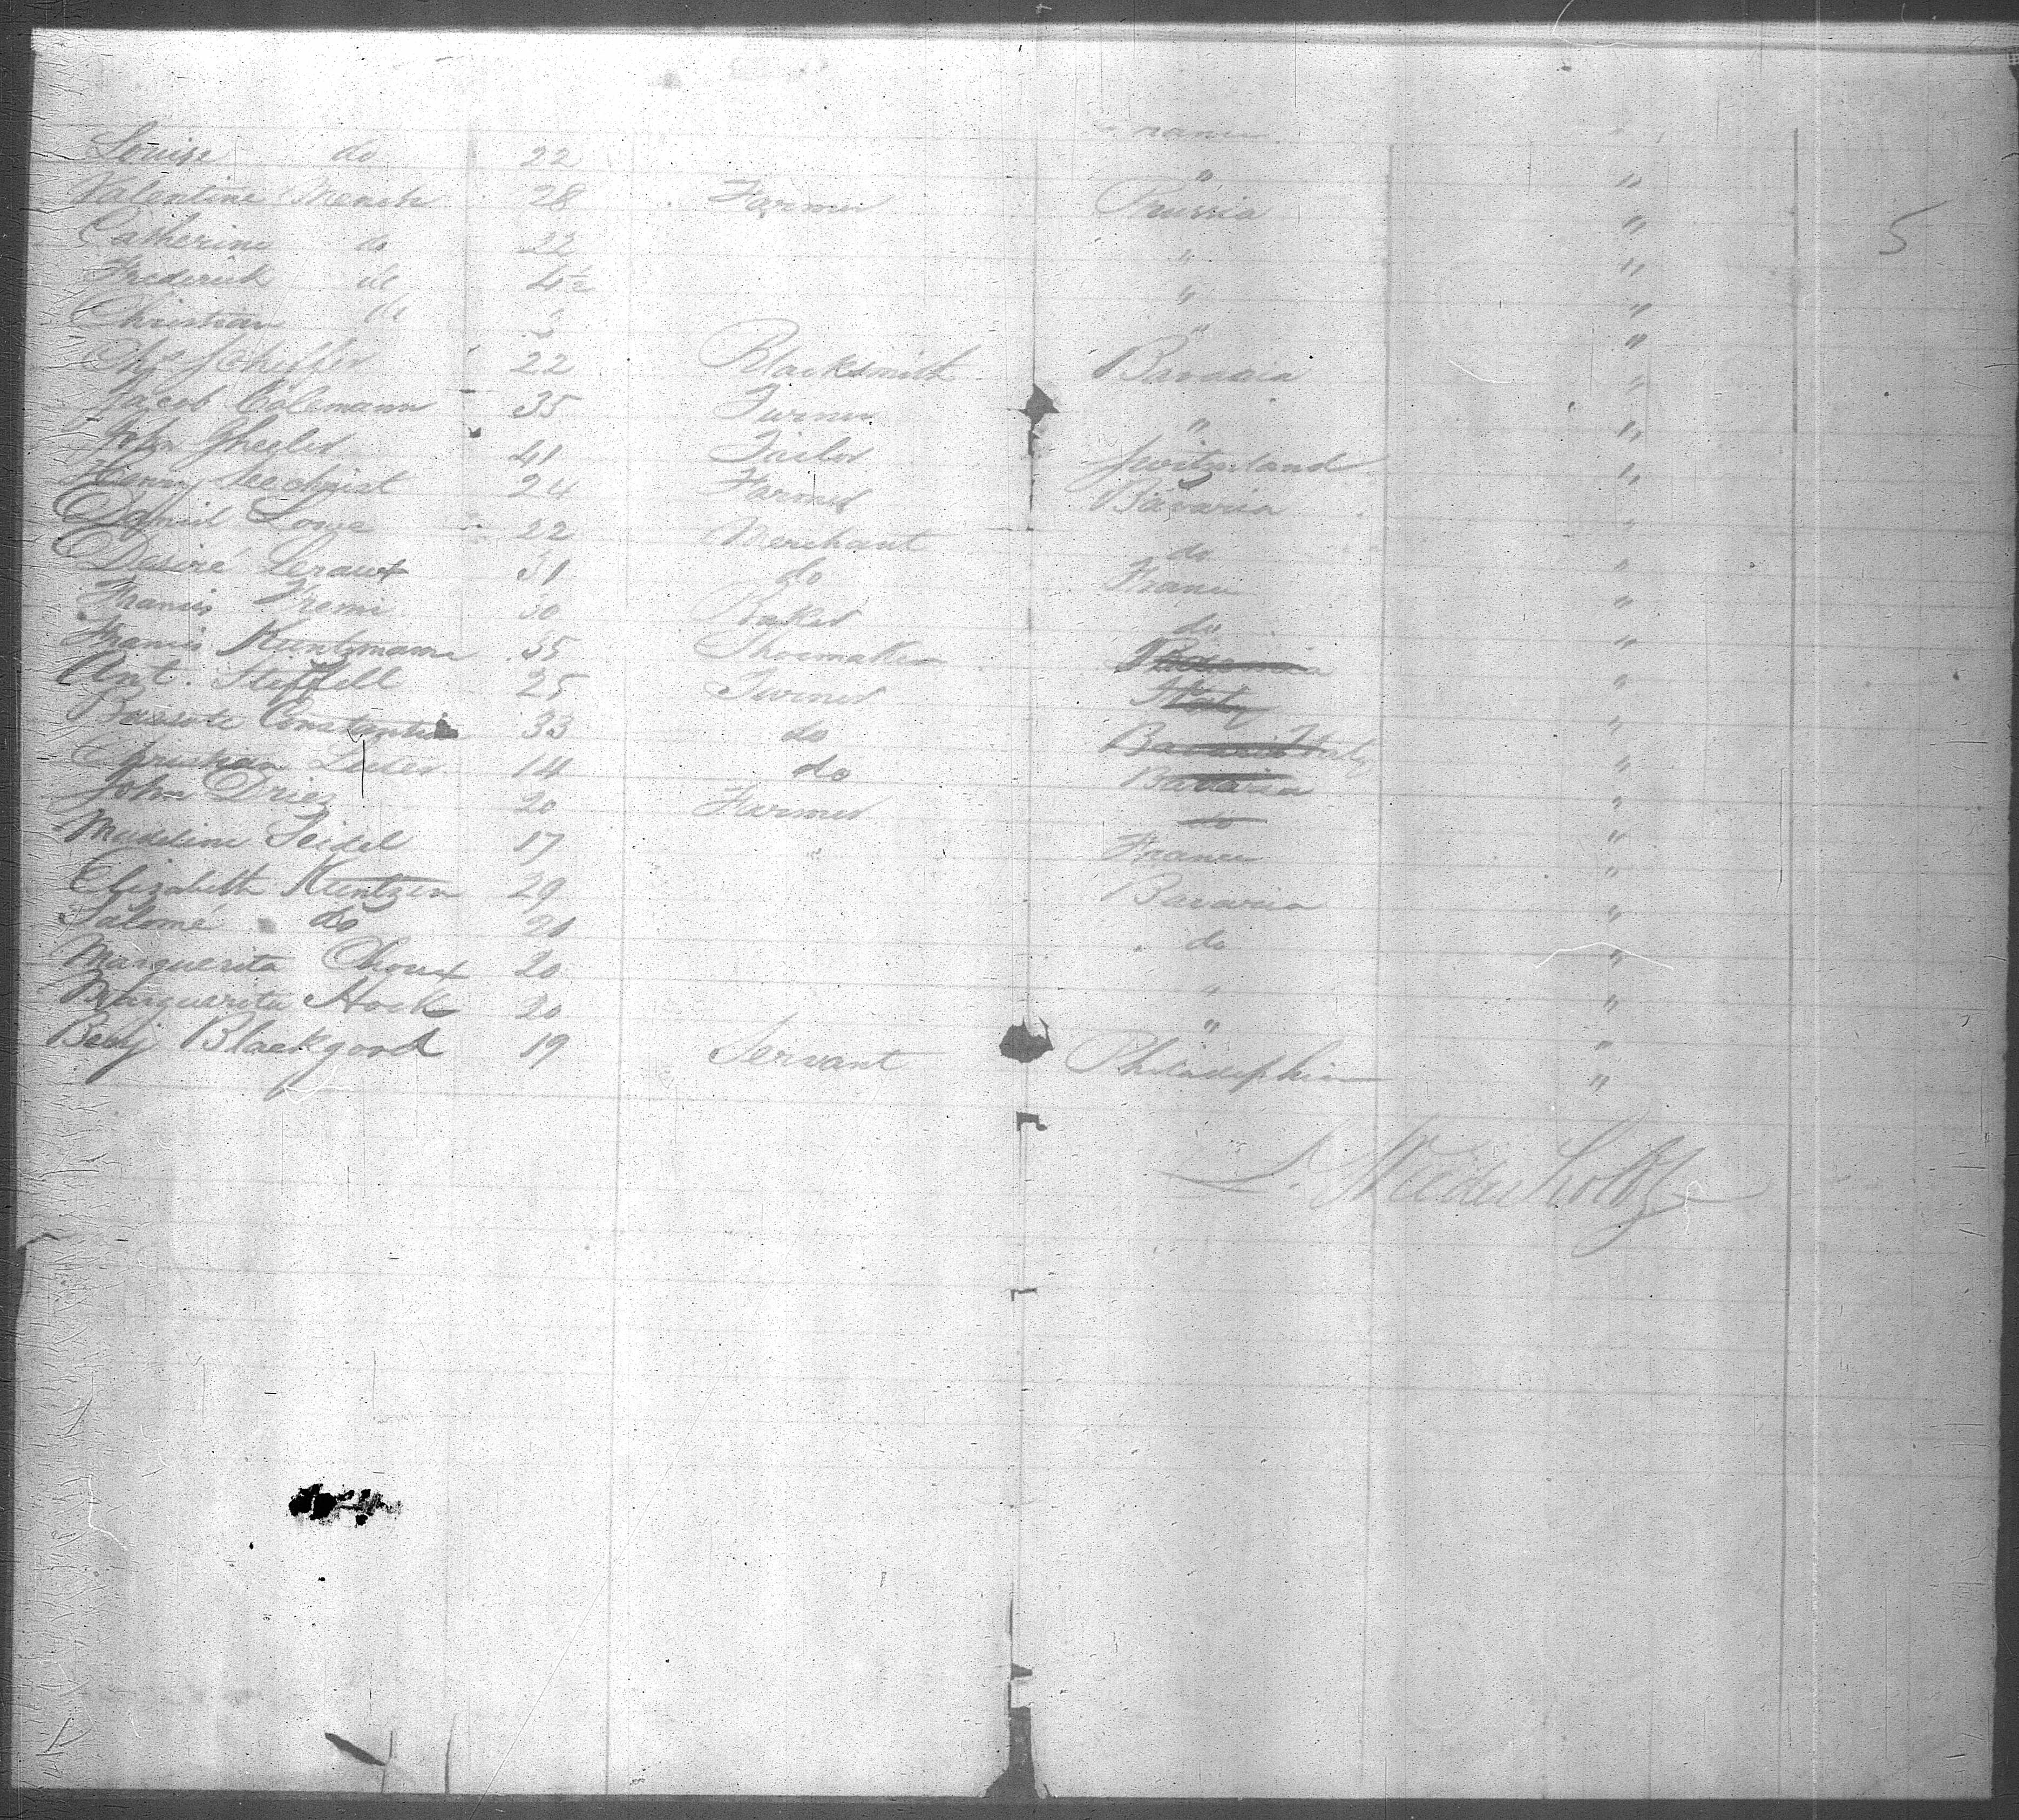 France "
Louise do 22 " "
Valentine Mensch 28 Farmer Prussia "
Catherine do 22 " "
Frederich do 4½ " "
Christian do " "
Scheffer 22 Blacksmith Bavaria "
Jacob Colemann 35 Turner " "
John Ghegler 41 Tailor Switzerland "
Henry Sechrist 24 Farmer Bavaria "
Daniel Lowe 22 Merchant do "
Desiré Leraux 31 do France "
Francis Fremi 30 Baker do "
Francis Kuntzmann 35 Shoemaker Bavaria "
Ant. Steffell 25 Turner Italy "
Bassote Constantin 33 do Bavaria Italy "
Christian 14 do Bavaria "
John Driez 20 Farmer do "
Madeline Seidel 17 France "
Elizabeth Kuntzen 29 Bavaria "
Salomé do 21 do "
Marguerita Choux 20 " "
Marguerita Hock 20 " "
Benj Blackgood 19 Servant Philadelphia "
5